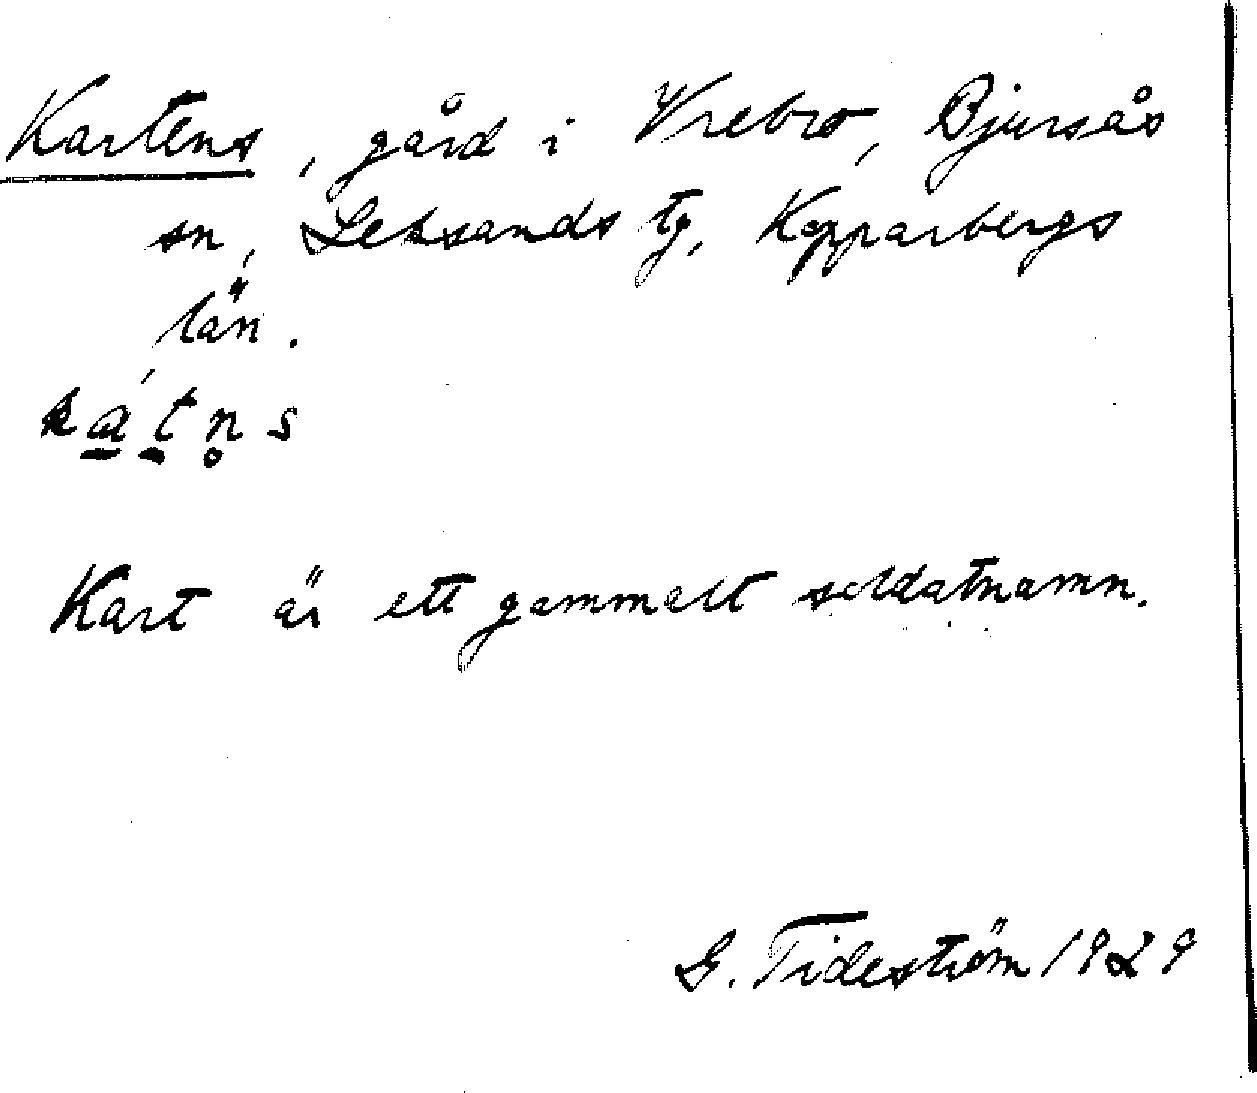 Kartens, gård i Vrebro, Bjursås
sn, Leksands tg, Kopparbergs
län.
ka̱̍t̠n̥s
Kart är ett gammalt soldatnamn.
G. Tideström 1929